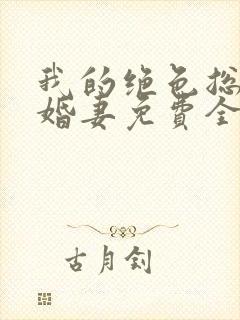 我的绝色总
婚妻免费全
古月钊